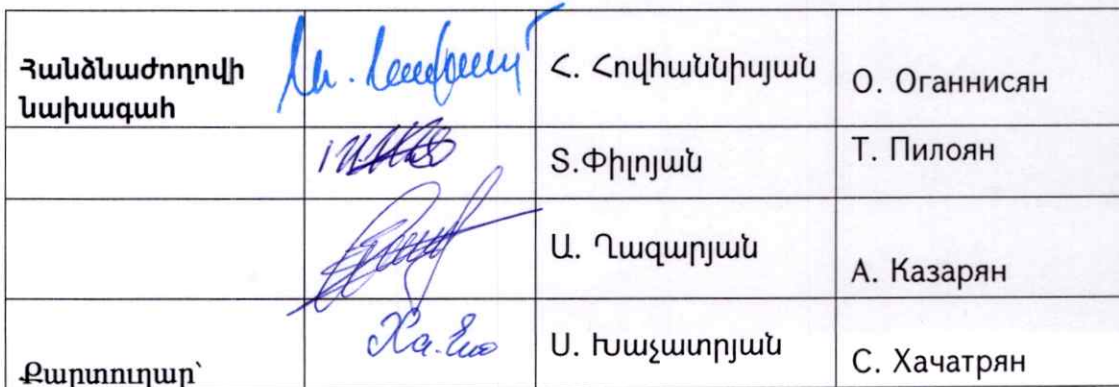 Հանձնաժողովի
նախագահ
Հ. Հովհաննիսյան
О. Оганнисян
Տ.Փիլոյան
Т. Пилоян
Ա. Ղազարյան
А. Казарян
Քարտուղար՝
Ս. Խաչատրյան
С. Хачатрян